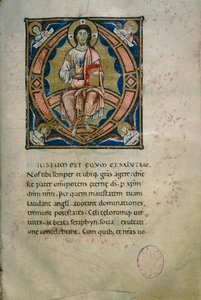 ET IUSTUM EST EQUUM ET SALUTARE
Nos tibi semper et ubiq; gr̃as agere. dñe
sc̃e pater omnipotens eterne ds̃. p xpm̃
dnm̃ nrm̃. Per quem maiestatem tuam
laudant angli. adorant dominationes,
tremunt potestates. Celi celorumq; uir
tutes. ac beata seraphyn. socia exultati
one concelebrant. Cum quib; et nr̃as uo